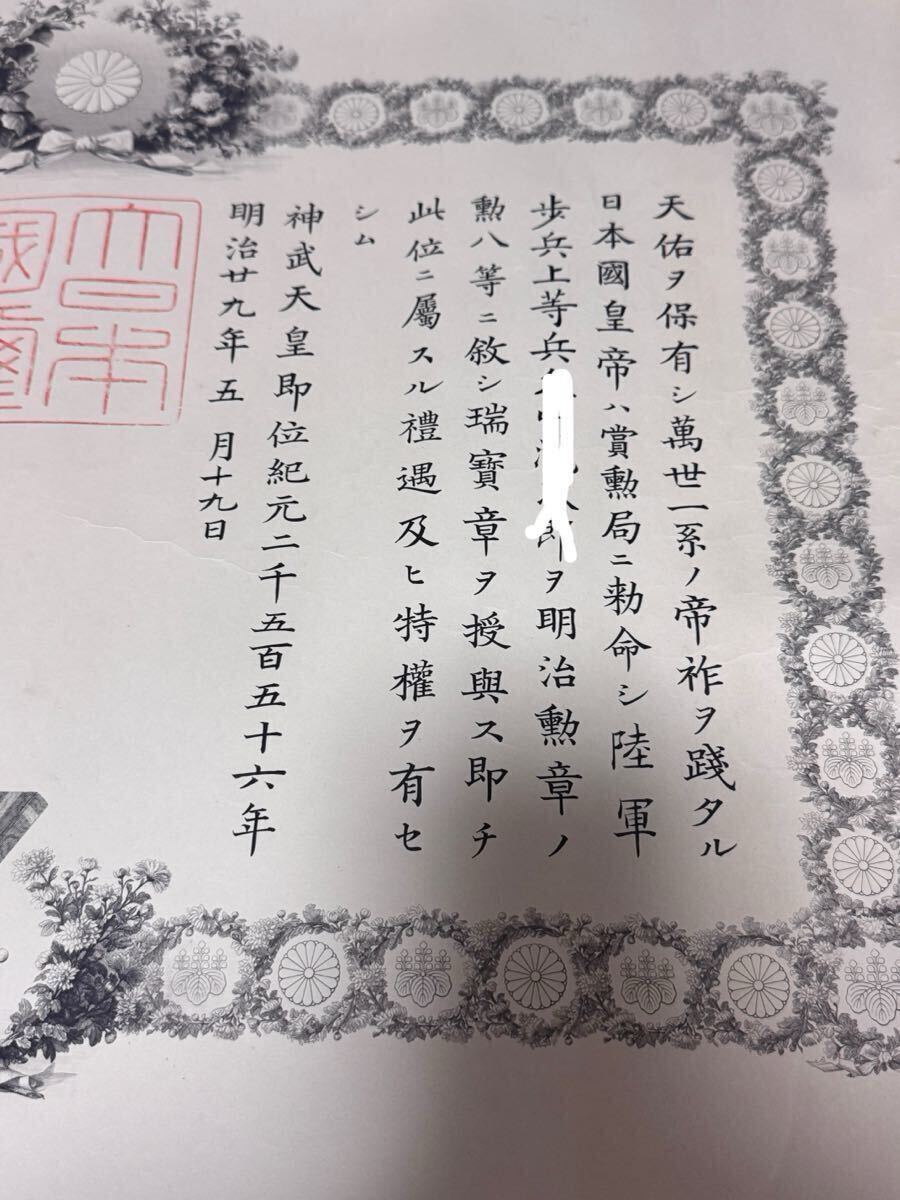 天佑ヲ保有シ萬世一系ノ帝祚ヲ踐タル
日本國皇帝ハ賞勲局ニ勅命シ陸軍
歩兵上等兵 郎ヲ明治勲章ノ
勲八等ニ敘シ瑞寶章ヲ授與ス即チ
此位ニ屬スル禮遇及ヒ特權ヲ有セ
シム
神武天皇即位紀元二千五百五十六年
明治廿九年五月十九日
大日本
國璽